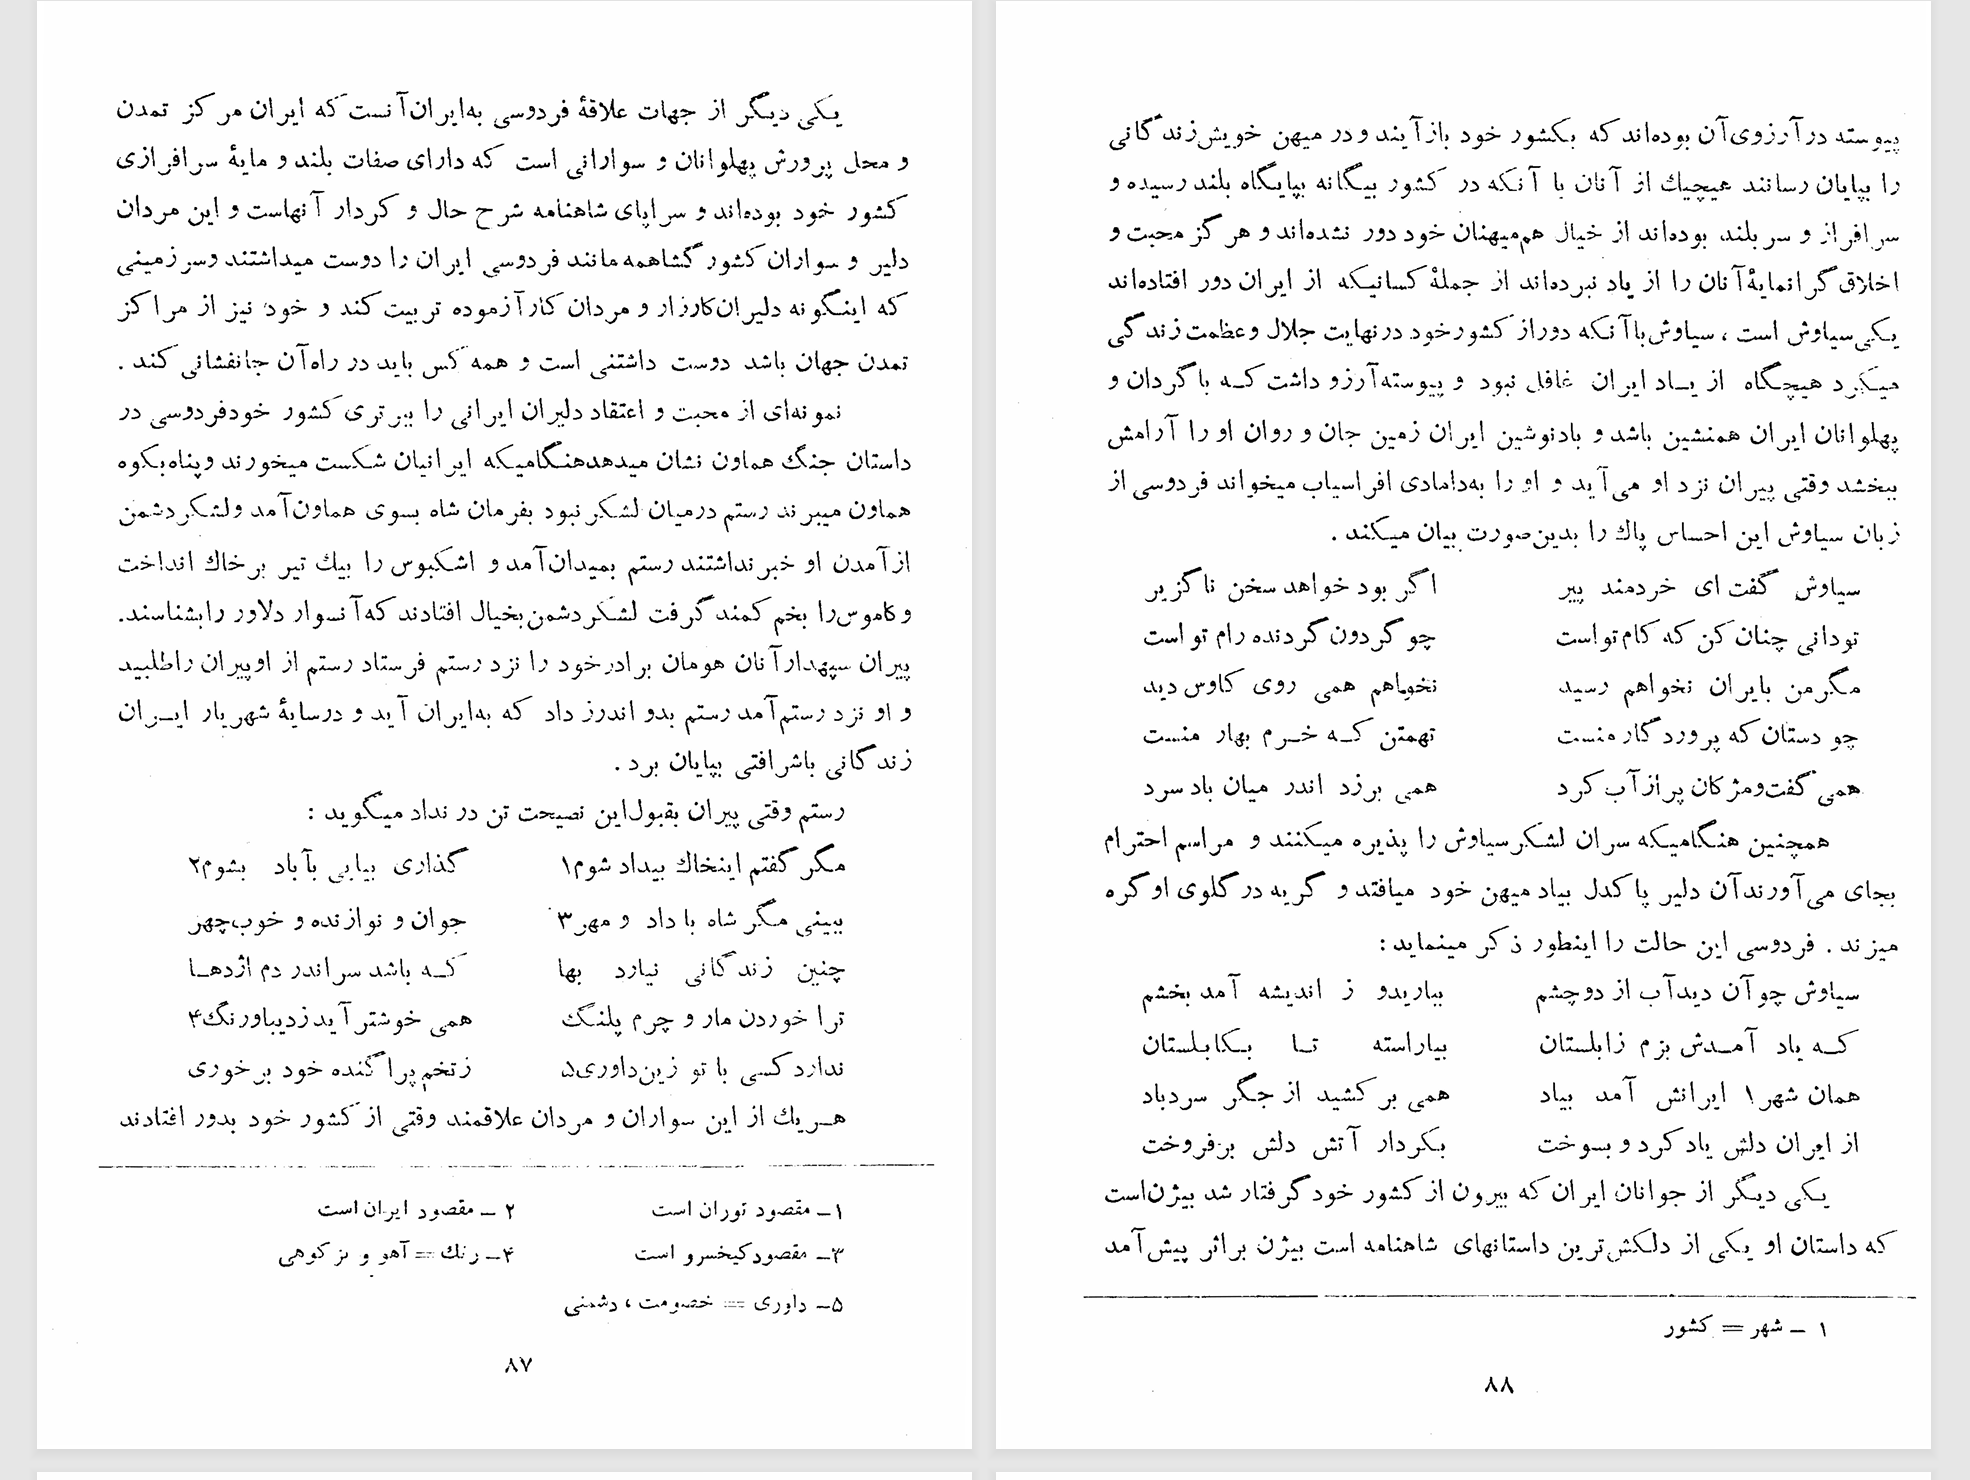 یکی دیگر از جهات علاقهٔ فردوسی به‌ایران‌آنست‌که ایران مرکز تمدن
و محل پرورش پهلوانان و سوارانی است که دارای صفات بلند و مایهٔ سرافرازی
کشور خود بوده‌اند و سراپای شاهنامه شرح حال و کردار آنهاست و این مردان
دلیر و سواران کشور گشاهمه مانند فردوسی ایران را دوست میداشتند وسرزمینی
که اینگونه دلیران‌کارزار و مردان کارآزموده تربیت کند و خود نیز از مراکز
تمدن جهان باشد دوست داشتنی است و همه کس باید در راه‌آن جانفشانی کند .
نمونه‌ای از محبت و اعتقاد دلیران ایرانی را ببرتری کشور خودفردوسی در
داستان جنگ هماون نشان میدهدهنگامیکه ایرانیان شکست میخورند وپناه‌بکوه
هماون میبرند رستم درمیان لشکر نبود بفرمان شاه بسوی هماون‌آمد ولشکردشمن
ازآمدن او خبر نداشتند رستم بمیدان‌آمد و اشکبوس را بیك تیر برخاك انداخت
وکاموس‌را بخم کمند گرفت لشکردشمن‌بخیال افتادند که‌آنسوار دلاور رابشناسند.
پیران سپهدارآنان هومان برادرخود را نزد رستم فرستاد رستم از اوپیران راطلبید
و او نزد رستم‌آمد رستم بدو اندرز داد که به‌ایران آید و درسایهٔ شهریار ایـران
زندگانی باشرافتی بپایان برد .
رستم وقتی پیران بقبول‌این نصیحت تن در نداد میگوید :
مگر گفتم اینخاك بیداد شوم۱ گذاری بیابی بآباد بشوم۲
ببینی مگر شاه با داد و مهر۳ جوان و نوازنده و خوب‌چهر
چنین زندگانی نیارد بها کـه باشد سراندر دم اژدهـا
ترا خوردن مار و چرم پلنگ همی خوشتر آید زدیباورنگ۴
ندارد کسی با تو زین‌داوری۵ زتخم‌پراگنده خود برخوری
هـریك از این سواران و مردان علاقمند وقتی از کشور خود بدور افتادند
۱ـ مقصود توران است ۲ ـ مقصود ایران است
۳ـ مقصودکیخسرو است ۴ـ رنك = آهو و بز کوهی
۵ـ داوری = خصومت ، دشمنی
۸۷
پیوسته درآرزوی‌آن بوده‌اند که بکشور خود بازآیند ودر میهن خویش‌زندگانی
را بپایان رسانند هیچیك از آنان با آنکه در کشور بیگانه بپایگاه بلند رسیده و
سرافراز و سربلند بوده‌اند از خیال هم‌میهنان خود دور نشده‌اند و هرگز محبت و
اخلاق گرانمایهٔ‌آنان را از یاد نبرده‌اند از جملهٔ کسانیکه از ایران دور افتاده‌اند
یکی‌سیاوش است ، سیاوش‌باآنکه دوراز کشورخود درنهایت جلال وعظمت زندگی
میکرد هیچگاه از یـاد ایران غافل نبود و پیوسته‌آرزو داشت کـه باگردان و
پهلوانان ایران همنشین باشد و بادنوشین ایران زمین جان و روان او را آرامش
ببخشد وقتی پیران نزد او می‌آید و او را به‌دامادی افراسیاب میخواند فردوسی از
زبان سیاوش این احساس پاك را بدین‌صورت بیان میکند .
سیاوش گفت ای خردمند پیر اگر بود خواهد سخن ناگزیر
تودانی چنان کن که کام‌تواست چو گردون گردنده رام تو است
مگرمن بایران نخواهم رسید نخواهم همی روی کاوس دید
چو دستان که پروردگار منست تهمتن کـه خـرم بهار منست
همی گفت‌ومژگان پرازآب کرد همی برزد اندر میان باد سرد
همچنین هنگامیکه سران لشکرسیاوش را پذیره میکنند و مراسم احترام
بجای می‌آورندآن دلیر پاکدل بیاد میهن خود میافتد و گریه در گلوی او گره
میزند . فردوسی این حالت را اینطور ذکر مینماید :
سیاوش چوآن دیدآب از دوچشم بباریدو ز اندیشه آمد بخشم
کـه یاد آمـدش بزم زابلستان بیاراسته تـا بـکابـلستان
همان شهر۱ ایرانش آمد بیاد همی بر کشید از جگر سردباد
از ایران دلش یاد کرد و بسوخت بکردار آتش دلش برفروخت
یکی دیگر از جوانان ایران که بیرون از کشور خود گرفتار شد بیژن‌است
که داستان او یکی از دلکش‌ترین داستانهای شاهنامه است بیژن براثر پیش‌آمد
۱ ـ شهر = کشور
۸۸